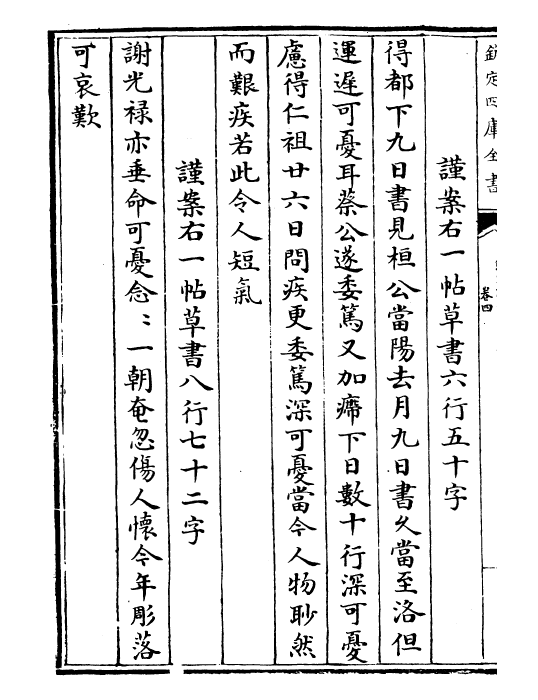 欽定四庫全書
卷四
謹案右一帖草書六行五十字
得都下九日書見桓公當陽去月九日書久當至洛但
運遲可憂耳蔡公遂委篤又加㿃下日數十行深可憂
慮得仁祖廿六日問疾更委篤深可憂當今人物眇然
而艱疾若此令人短氣
謹案右一帖草書八行七十二字
謝光祿亦垂命可憂念〻一朝奄忽傷人懷今年彫落
可哀歎